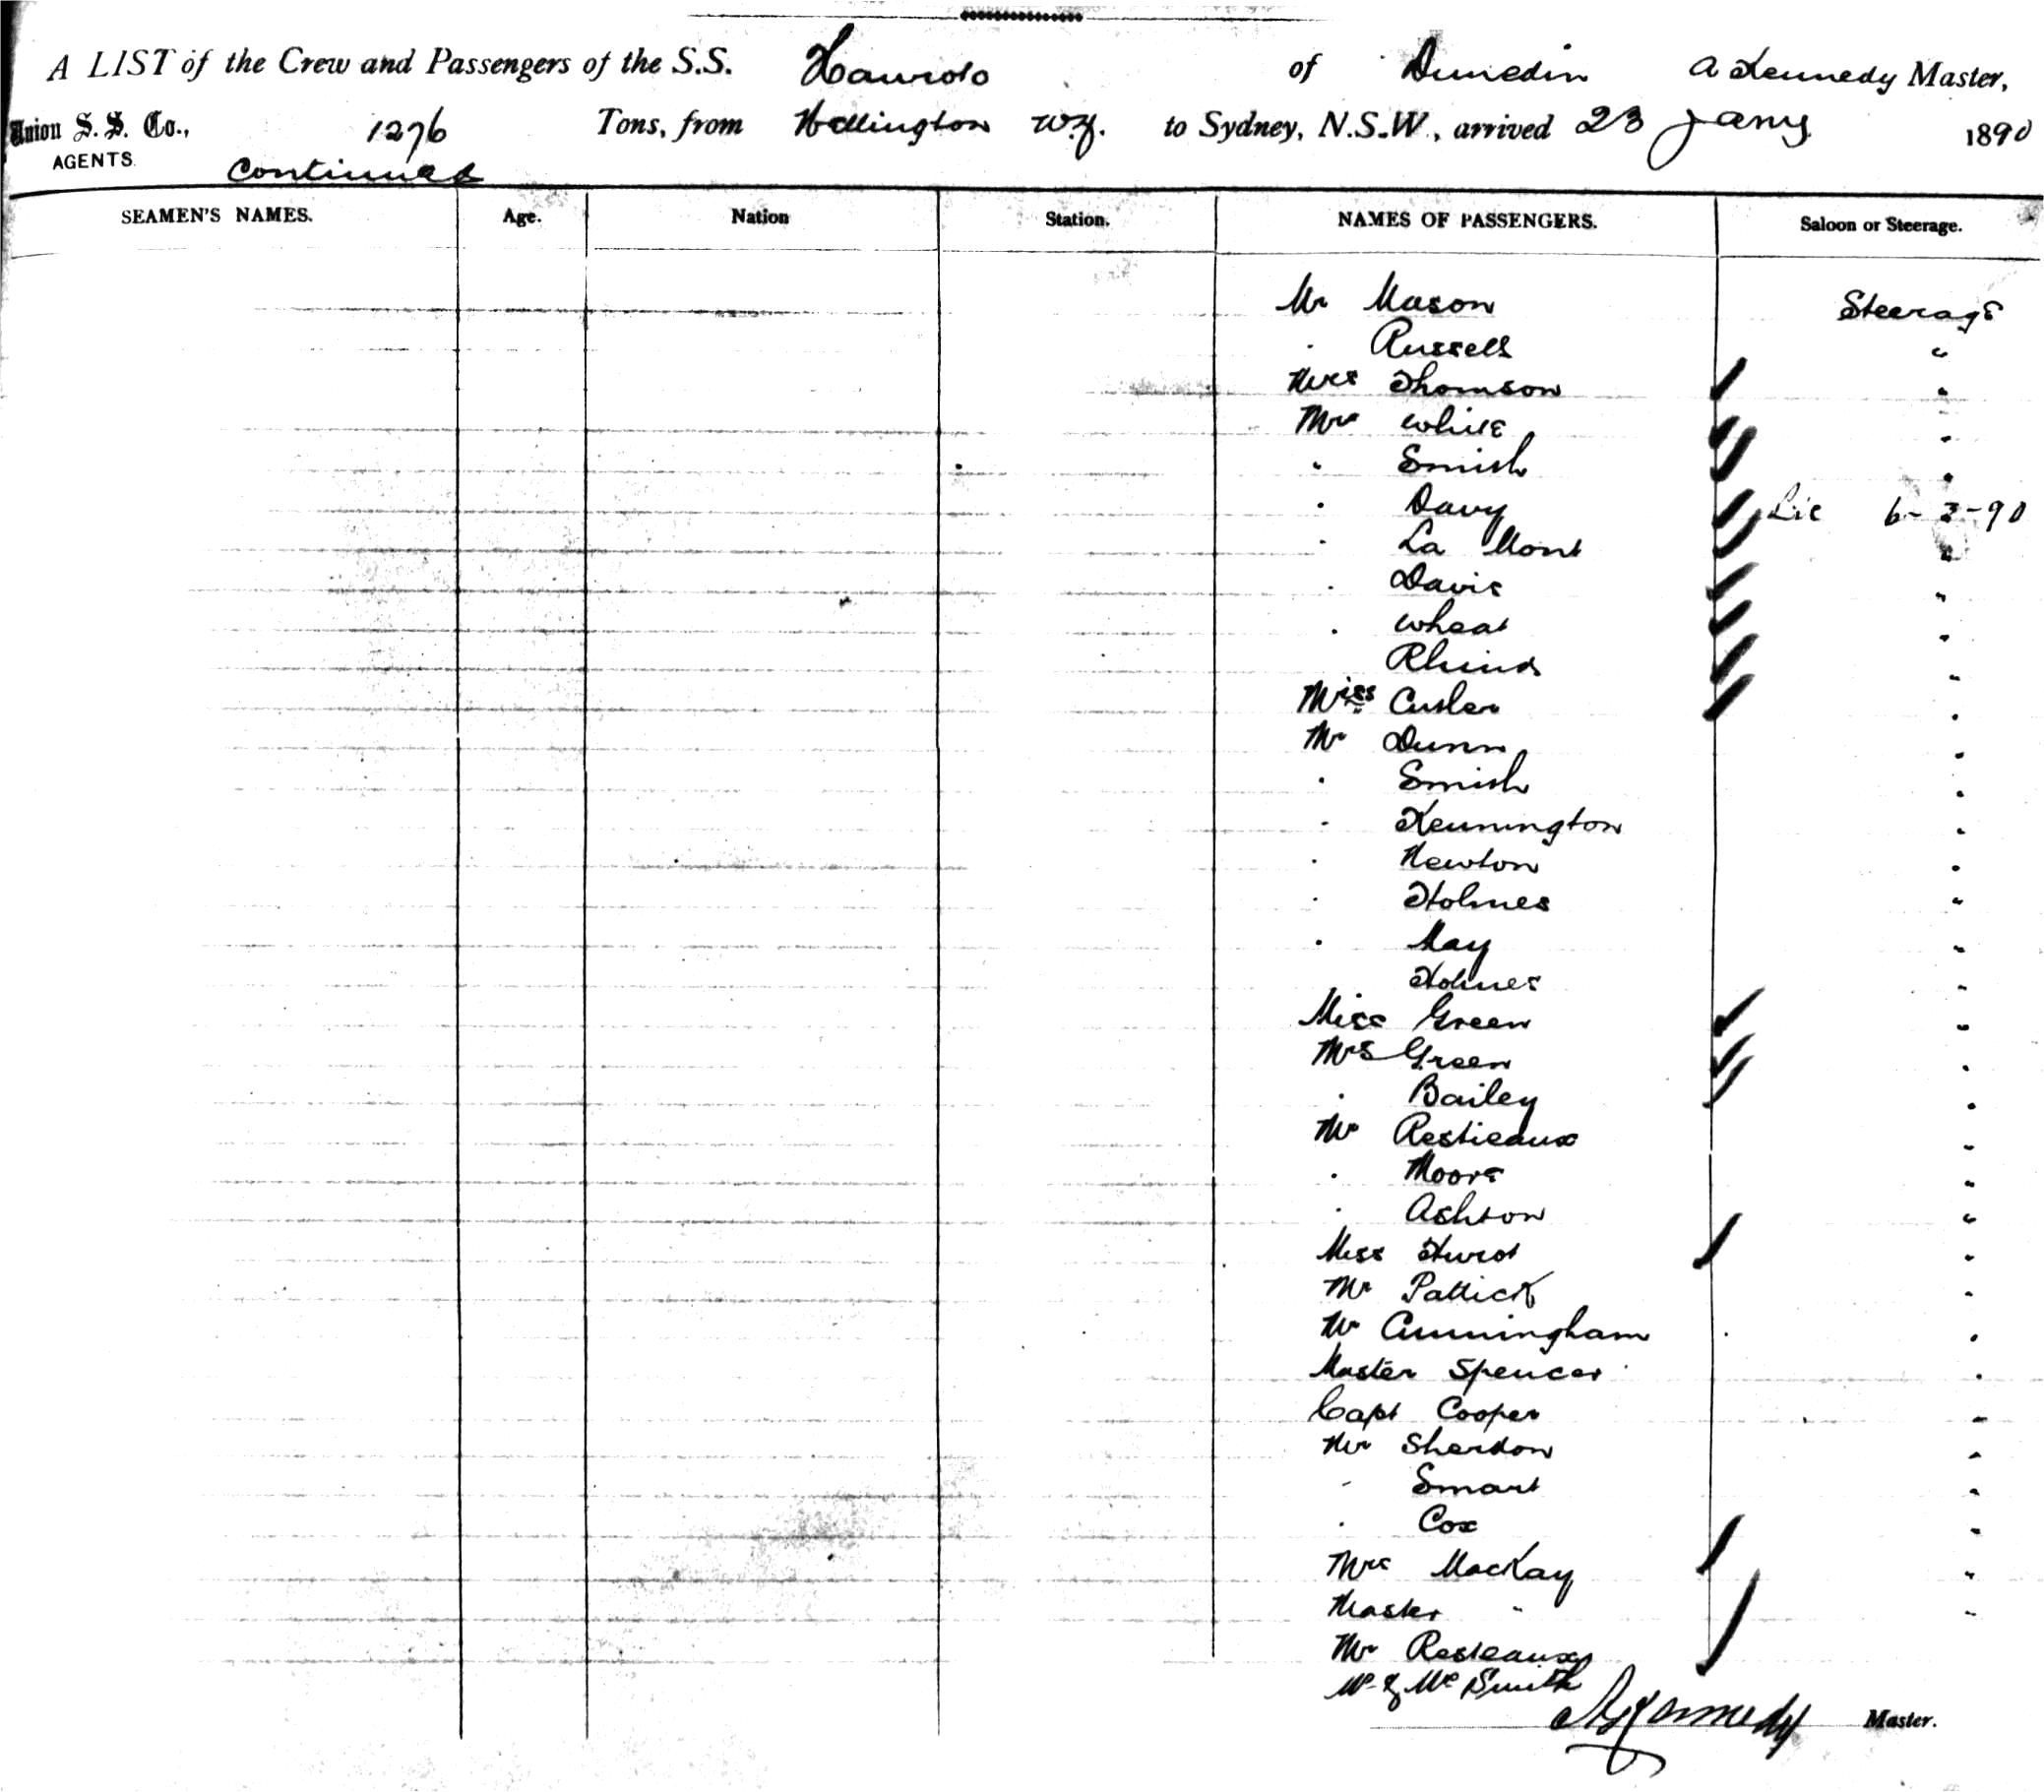 A LIST of the Crew and Passengers of the S.S. Hauroto of Dunedin A Kennedy Master,
Union S. S. Co., 1276 Tons, from Wellington N.Z. to Sydney, N.S.W., arrived 23 Jany 1890
AGENTS.
Continued
SEAMEN'S NAMES. Age. Nation Station. NAMES OF PASSENGERS. Saloon or Steerage.
Mr Mason Steerage
" Russell "
Mrs Thomson "
Mrs White "
" Smith "
" Davy Lic 6-3-90
" La Mont "
" Davis "
" Wheat "
Rhind "
Miss Cutler "
Mr Dunn "
" Smith "
" Kennington "
" Newton "
" Holmes "
" May "
Holmes "
Miss Green "
Mrs Green "
" Bailey "
Mr Restieaux "
" Moore "
" Ashton "
Miss Hurst "
Mr Pattick "
Mr Cunningham "
Master Spencer "
Capt Cooper "
Mr Sherdon "
" Smart "
" Cox "
Mrs MacKay "
Master " "
Mr Resteaux
Mr & Mrs Smith
A Kennedy Master.